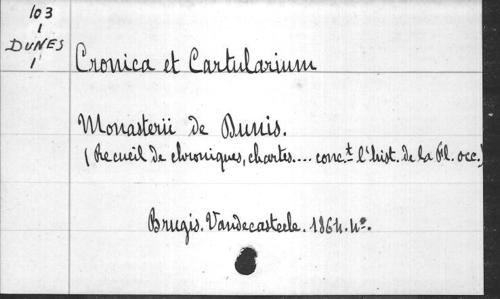 103
1
DUNES
1
Cronica et Cartularium
Monasterii de Dunis.
(Recueil de chroniques, chartes.... conc.t l'hist. de la Fl. occ.)
Brugis. Vandecasteele. 1864. 4°.